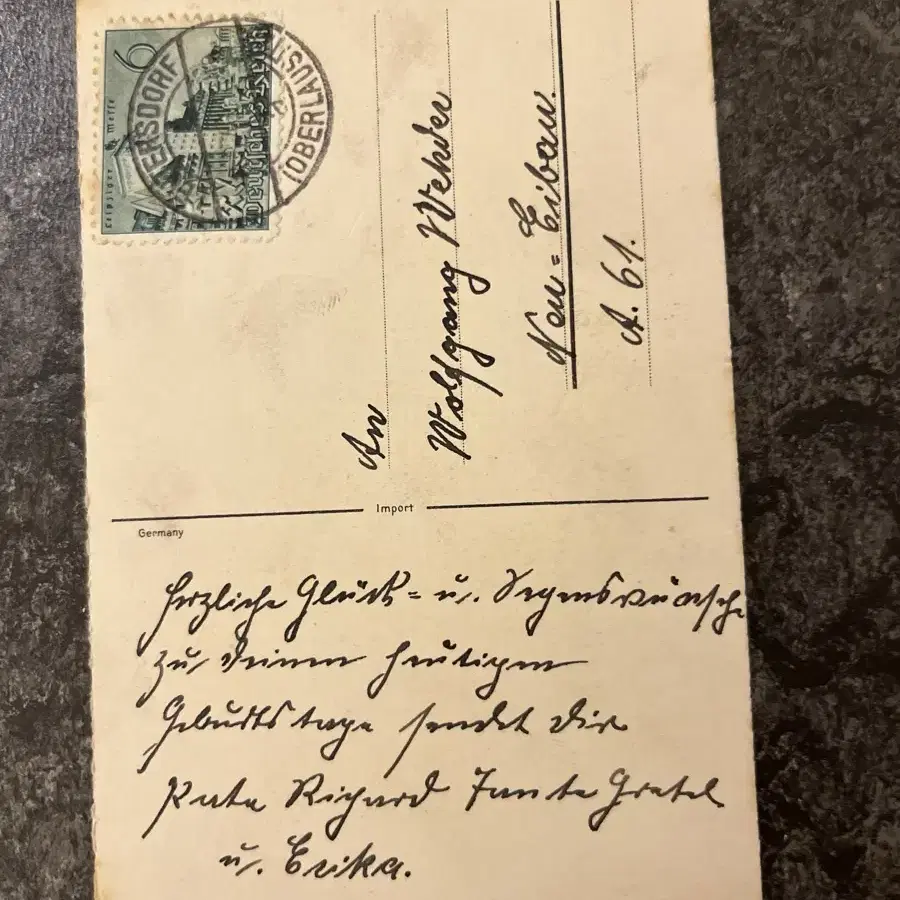 6
Leipziger Messe
Deutsches Reich
ERSDORF
(OBERLAUSIT
An
Wolfgang Wehder
Neu=Eibau.
A. 61.
Import
Germany
Herzliche Glück= u. Segenswünsche
zu Deinem heutigen
Geburtstage sendet Dir
Pate Richard Tante Gretel
u. Erika.